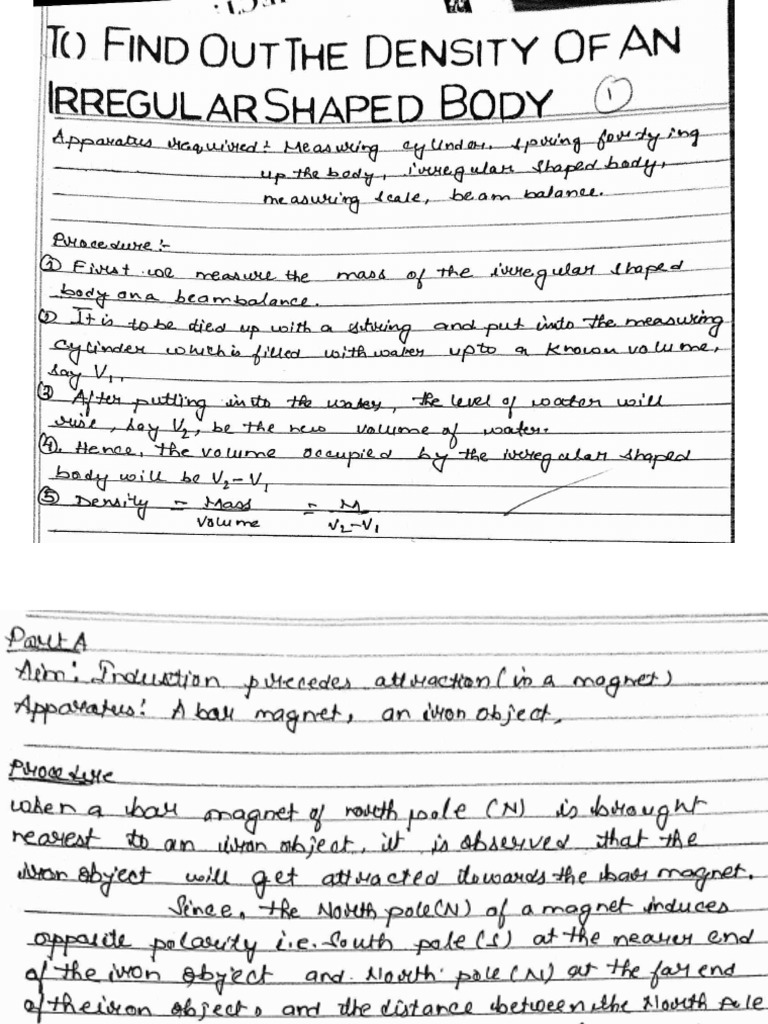 TO FIND OUT THE DENSITY OF AN
IRREGULAR SHAPED BODY ①
Apparatus required :- Measuring cylinder, spring for dying
up the body, irregular shaped body,
measuring scale, beam balance.
Procedure :-
① First we measure the mass of the irregular shaped
body on a beam balance.
② It is to be died up with a string and put into the measuring
cylinder which is filled with water upto a known volume,
say V₁.
③ After putting into the water, the level of water will
rise, say V₂, be the new volume of water.
④. Hence, the volume occupied by the irregular shaped
body will be V₂-V₁
⑤ Density = Mass/Volume = M/V₂-V₁
Part A
Aim: Induction precedes attraction (in a magnet)
Apparatus: A bar magnet, an iron object,
Procedure
When a bar magnet of north pole (N) is brought
nearest to an iron object, it is observed that the
iron object will get attracted towards the bar magnet.
Since, the North pole (N) of a magnet induces
opposite polarity i.e. South pole (S) at the nearer end
of the iron object and North pole (N) at the far end
of the iron object, and the distance between the North pole